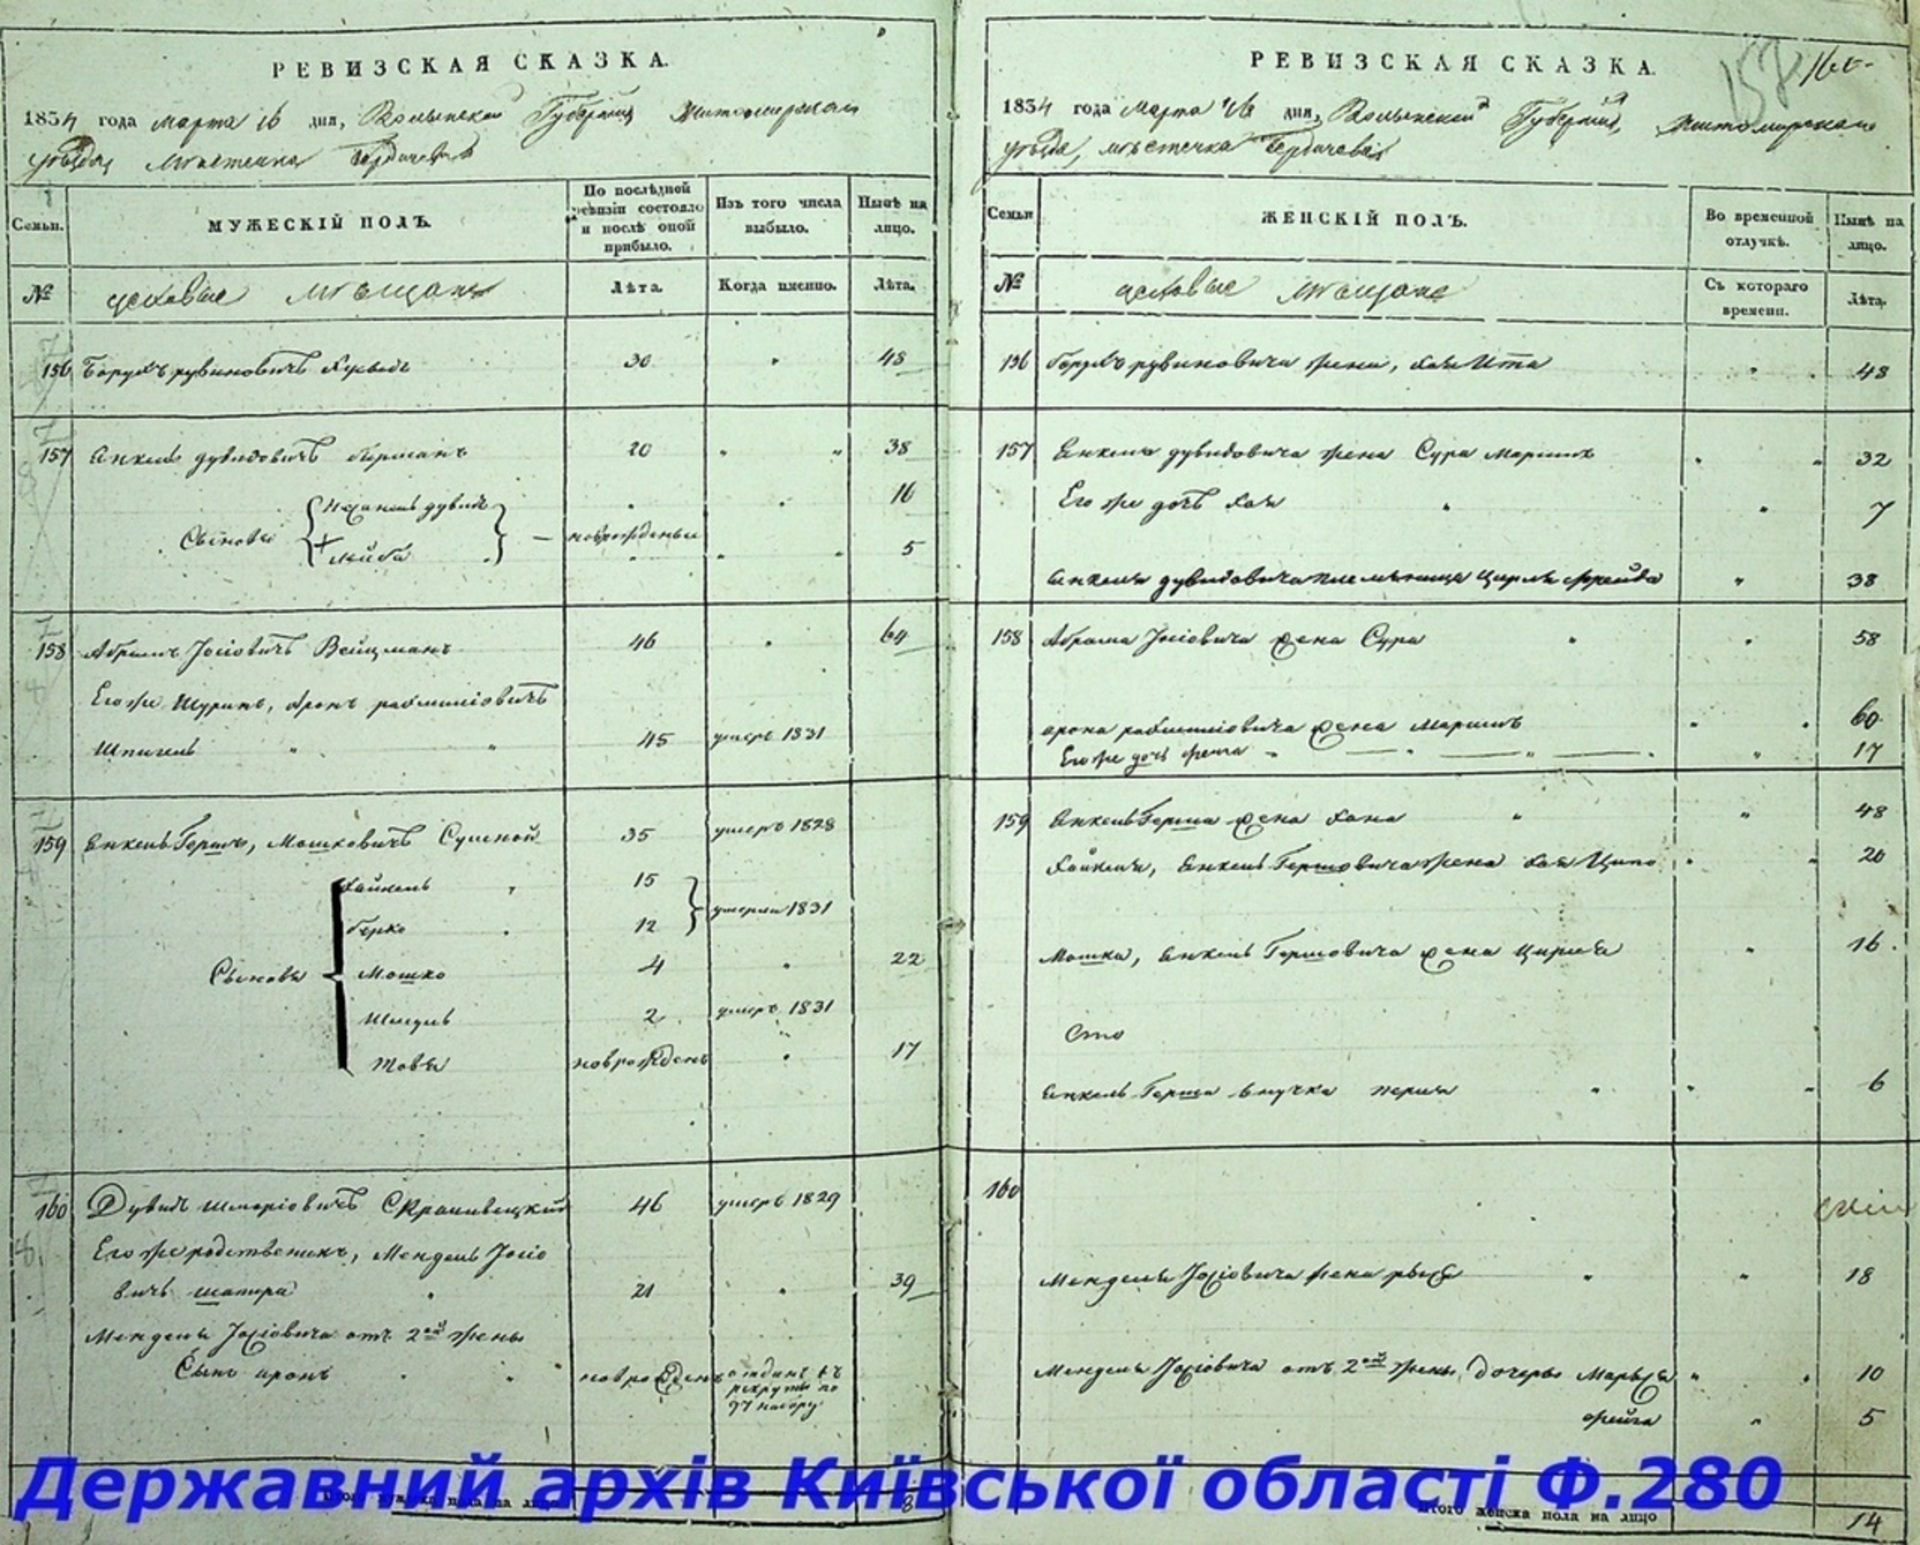 РЕВИЗСКАЯ СКАЗКА.
1834 года марта 16 дня, Волынской Губернии Житомирскаго
уѣзда Мѣстечка Бердичева
Семьи.
МУЖЕСКІЙ ПОЛЪ.
По послѣдней ревизіи состояло и послѣ оной прибыло.
Изъ того числа выбыло.
Нынѣ на лицо.
№
цеховые мѣщане
Лѣта.
Когда именно.
Лѣта.
156 Борухъ рувиновичъ 30 48
157 Янкель дувидовичъ 20 38
Сыновья дувидъ новорожденые 16
Лейба 5
158 Абрамъ Іосіовичъ Вейцманъ 46 64
Его же Шуринъ, Аронъ
Шпигель 45 умеръ 1831
159 Янкель Гершъ, Мошковичъ 35 умеръ 1828
Сыновья
Хайкель 15
Берко 12 умерли 1831
Мошко 4 22
Шмуль 2 умеръ 1831
Товья новорожденъ 17
160 Дувидъ 46 умеръ 1829
Его же родственикъ, Мендель Іосіо
вичъ шапира 21 39
Менделя Іосіовича отъ 2ой жены
Сынъ аронъ новорожденъ отданъ въ рекруты по 97 набору
8
РЕВИЗСКАЯ СКАЗКА.
158
1834 года Марта 16 дня, Волынской Губерніи, Житомирскаго
уѣзда, мѣстечка Бердичева
Семьи
ЖЕНСКІЙ ПОЛЪ.
Во временной отлучкѣ.
Нынѣ на лицо.
№
цеховые мѣщане
Съ котораго времени.
Лѣта.
156 Борухъ рувиновича жена, Хая Ита 48
157 Янкеля дувидовича жена Сура 32
Его же дочь Хая 7
Янкеля дувидовича племянница Цирля Фрейда 38
158 Абрама Іосіовича жена Сура 58
арона жена 60
Его же дочь 17
159 Янкель Герша жена Хана 48
Хайкеля, Янкель Гершовича жена Хая Ципа 20
Мошка, Янкель Гершовича жена Цирля 16
Сто
Янкель Герша внучка перля 6
160
Менделя Іосіовича жена 18
Менделя Іосіовича отъ 2ой жены дочерь 10
фейга 5
Итого женска пола на лицо 14
Державний архів Київської області Ф.280